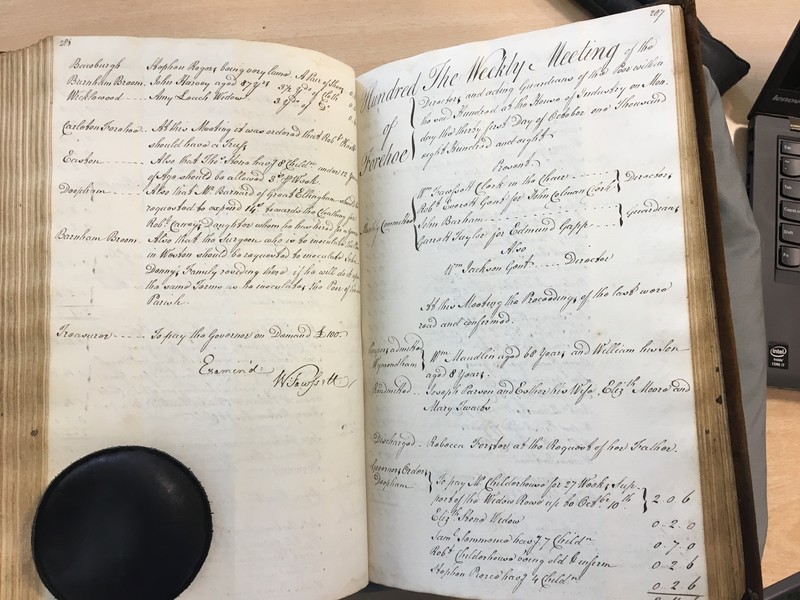 286
Bawburgh Stephen Roger, being very lame. A Pair of Shoes
Barnham Broom John Harvey aged 87 Yrs 3½ Yds of Cloth
Wicklewood Amy Leach Widow 3 Yds of Do
Carleton Forehoe At this Meeting it was ordered that Robt
should have a Truss
Easton Also that Thos Stone havg 8 Childn under 12 Years
of Age should be allowed 3s Week
Deopham Also that Mr Barnard of Great Ellingham
requested to expend 14s towards the Cloathing for
Robt Daughter whom he has hired for a
Barnham Broom Also that the Surgeon who is to inoculate the
in Weston should be requested to inoculate John
Denny's Family residing there if he will do it upon
the same Terms as he inoculates the Poor of
Parish.
Treasurer To pay the Governor on Demand £100.
Examin'd
W Fawssett
287
Hundred of Forehoe The Weekly Meeting of the
Directors and acting Guardians of the Poor within
the said Hundred at the House of Industry on Mon
day the thirty first Day of October one Thousand
eight Hundred and eight
Present
Wm Fawssett Clerk in the Chair
Robt Everett Gent for John Colman Clerk Directors
Weekly Committee
John Barham
Garrett Taylor for Edmund Gapp Guardians
Also
Wm Jackson Gent Director
At this Meeting the Proceedings of the last were
read and confirmed.
Paupers admitted Wymondham Wm Maudlin aged 60 Years and William
aged 8 Years.
Readmitted Joseph Parson and Esther his Wife, Elizth Moore and
Mary
Discharged Rebecca Forster at the Request of her Father.
Governors Orders
Deopham To pay Mr Childerhouse for 27 Weeks Sup-
port of the Widow up to Octbr 10th 2..0..6
Elizth Widow 0..2..0
Saml Simmons havg 7 Childn 0..7..0
Robt Childerhouse being old & infirm 0..2..6
Stephen Pearce havg 4 Childn 0..2..6
lenovo
Esc
Tab
CapsLock
Shift
Fn
intel
inside
CORE i7